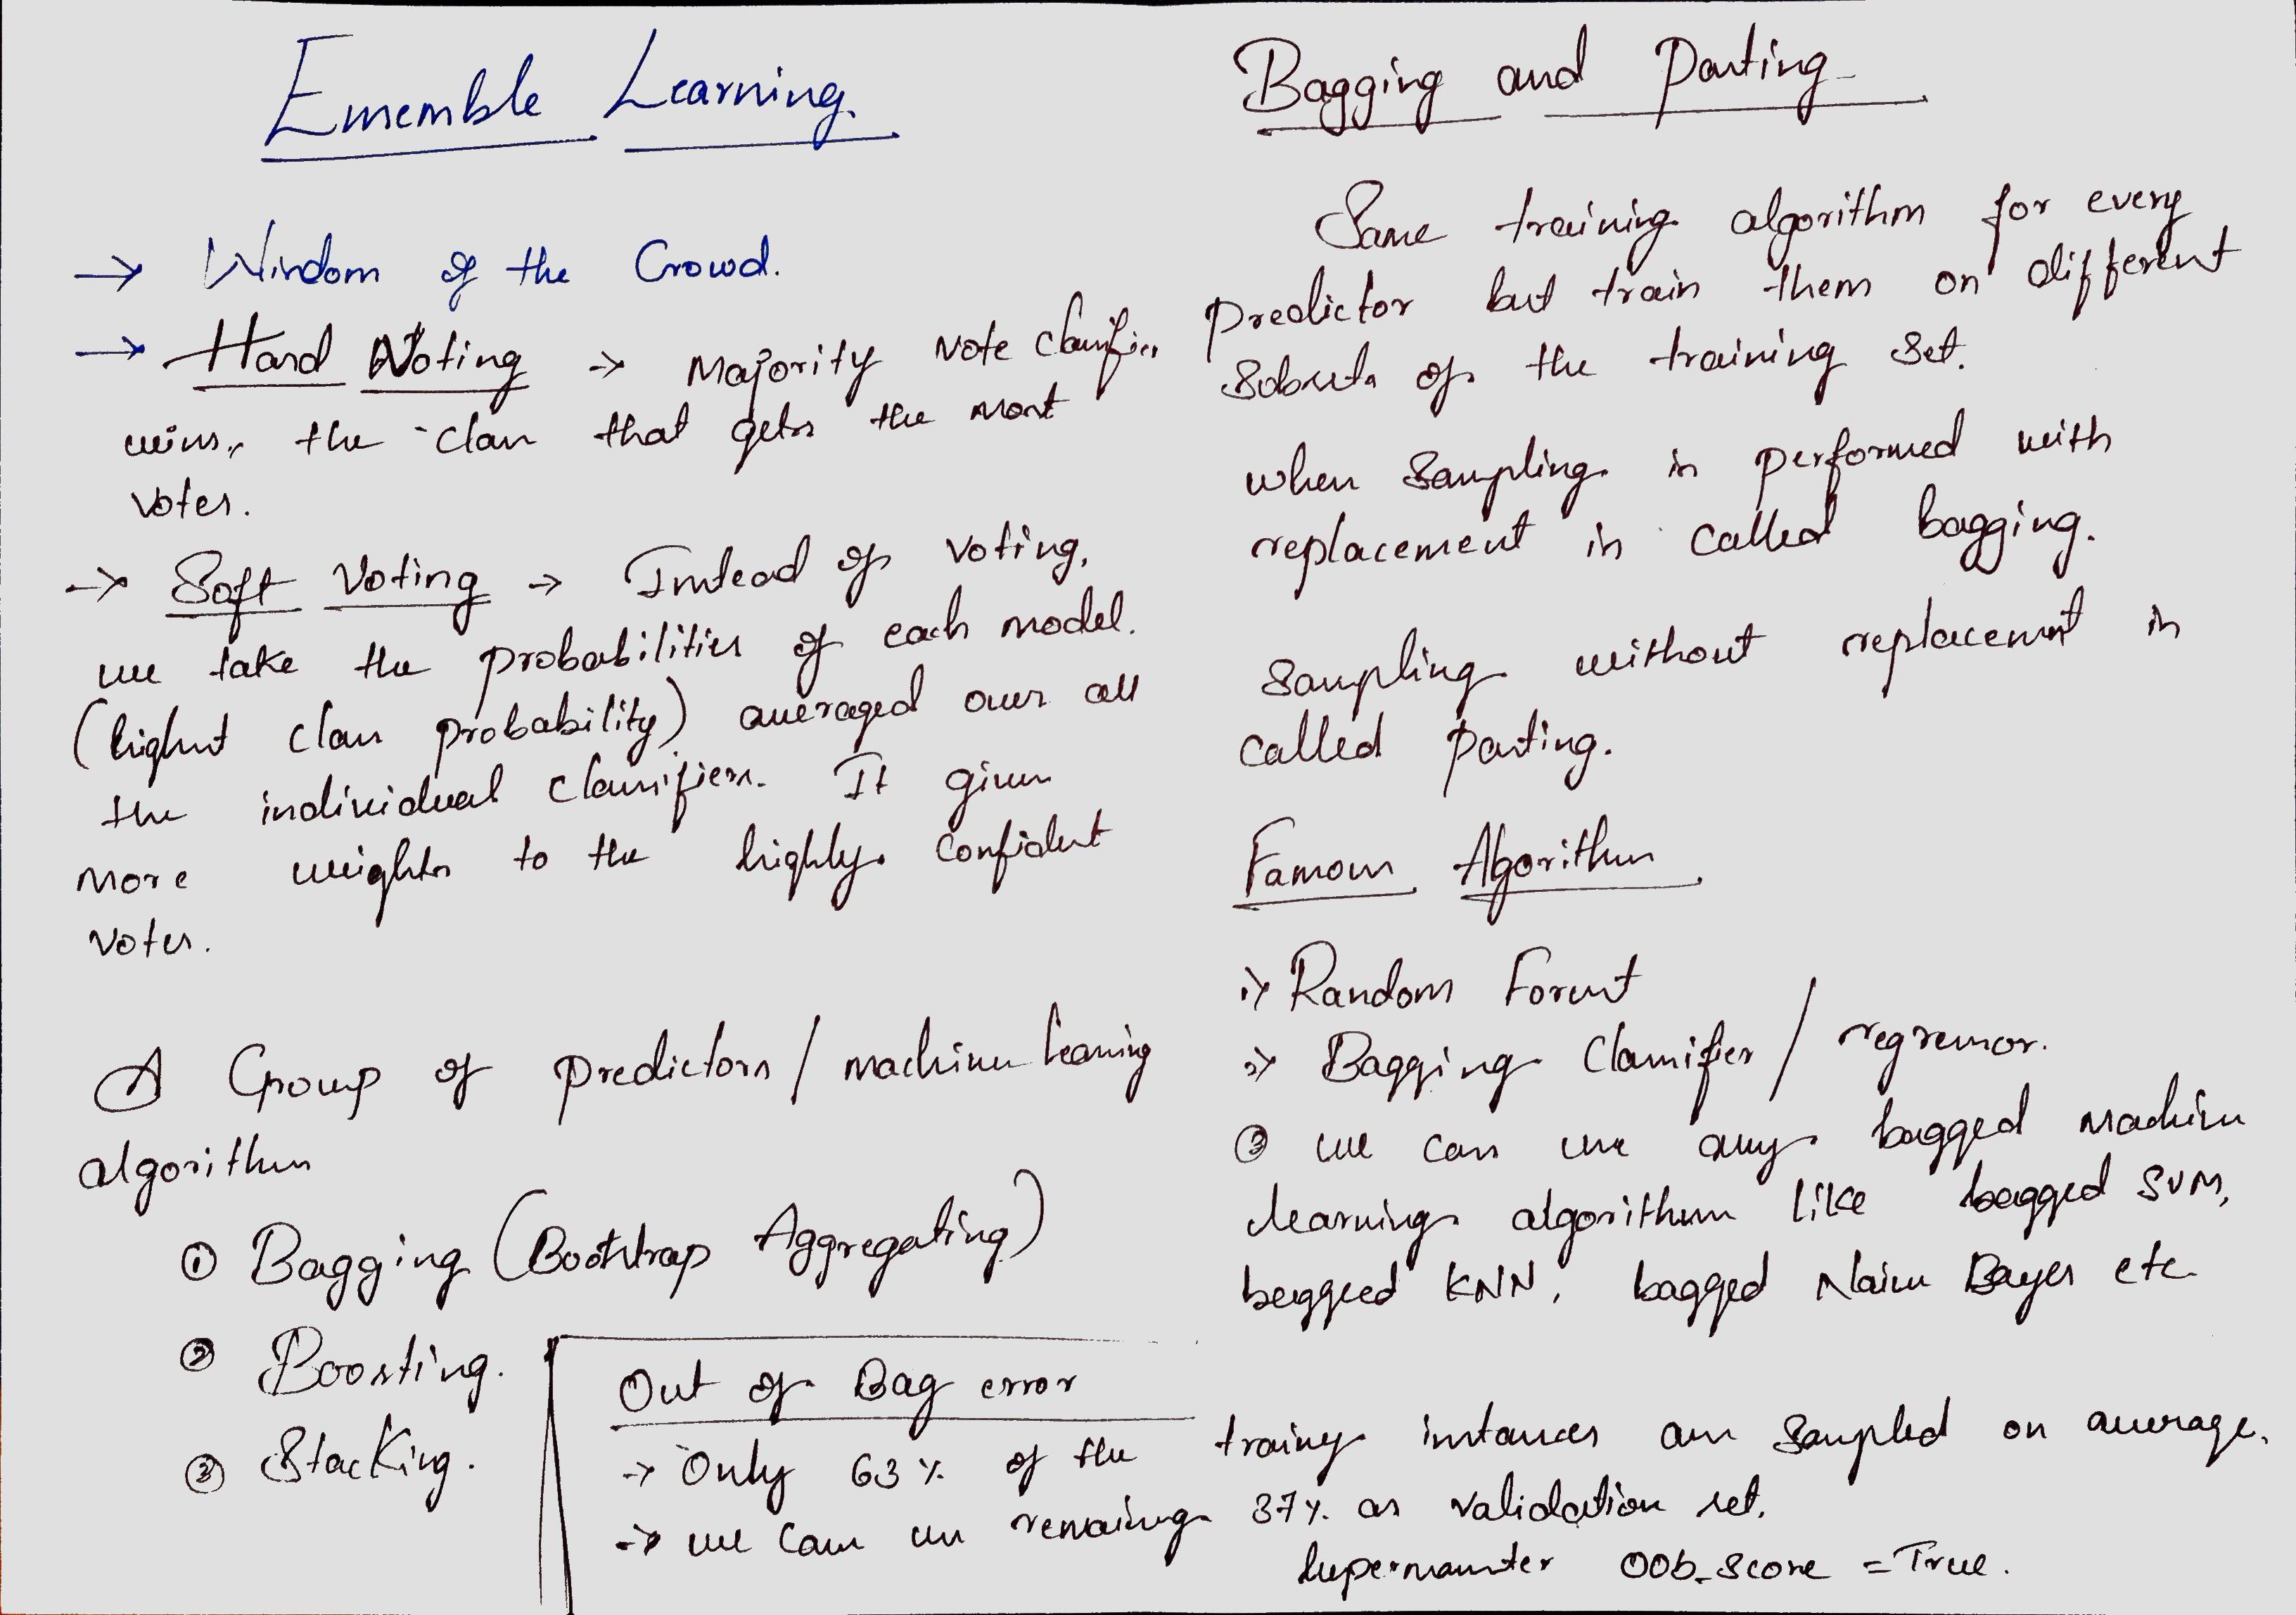 Ensemble Learning.
→ Wisdom of the Crowd.
→ Hard Voting → Majority vote classifier
wins, the class that gets the most
votes.
→ Soft Voting → Instead of voting,
we take the probabilities of each model.
(highest class probability) averaged over all
the individual classifiers. It gives
more weights to the highly confident
votes.
A Group of predictors / machine learning
algorithm
① Bagging (Bootstrap Aggregating)
② Boosting.
③ Stacking.
Bagging and Pasting
Same training algorithm for every
predictor but train them on different
subsets of the training set.
when sampling is performed with
replacement is called bagging.
sampling without replacement is
called pasting.
Famous Algorithm
1) Random Forest
2) Bagging Classifier / regressor.
③ we can use any bagged machine
learning algorithm like bagged SVM,
bagged KNN, bagged Naive Bayes etc
Out of Bag error
→ Only 63% of the training instances are sampled on average.
→ we can use remaining 37% as validation set.
OOb_score = True.